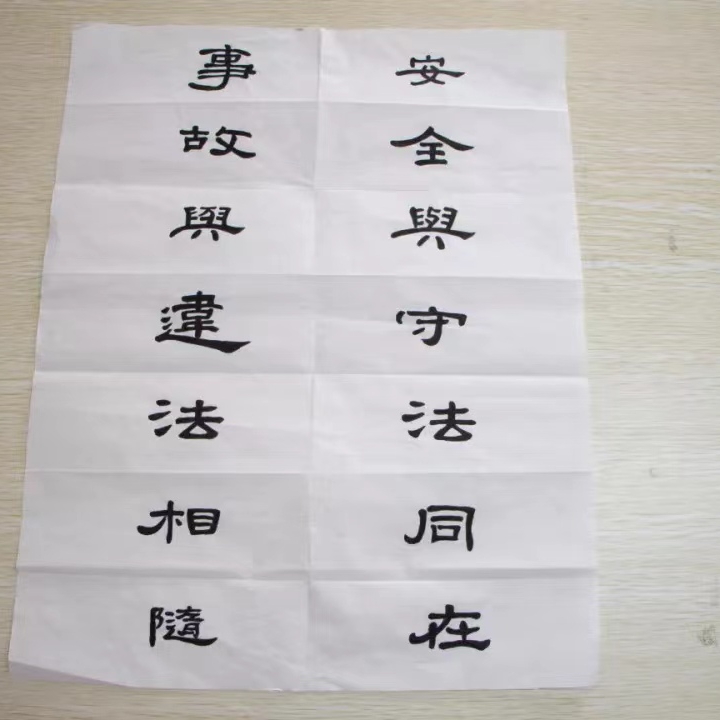 安全與守法同在
事故與違法相隨